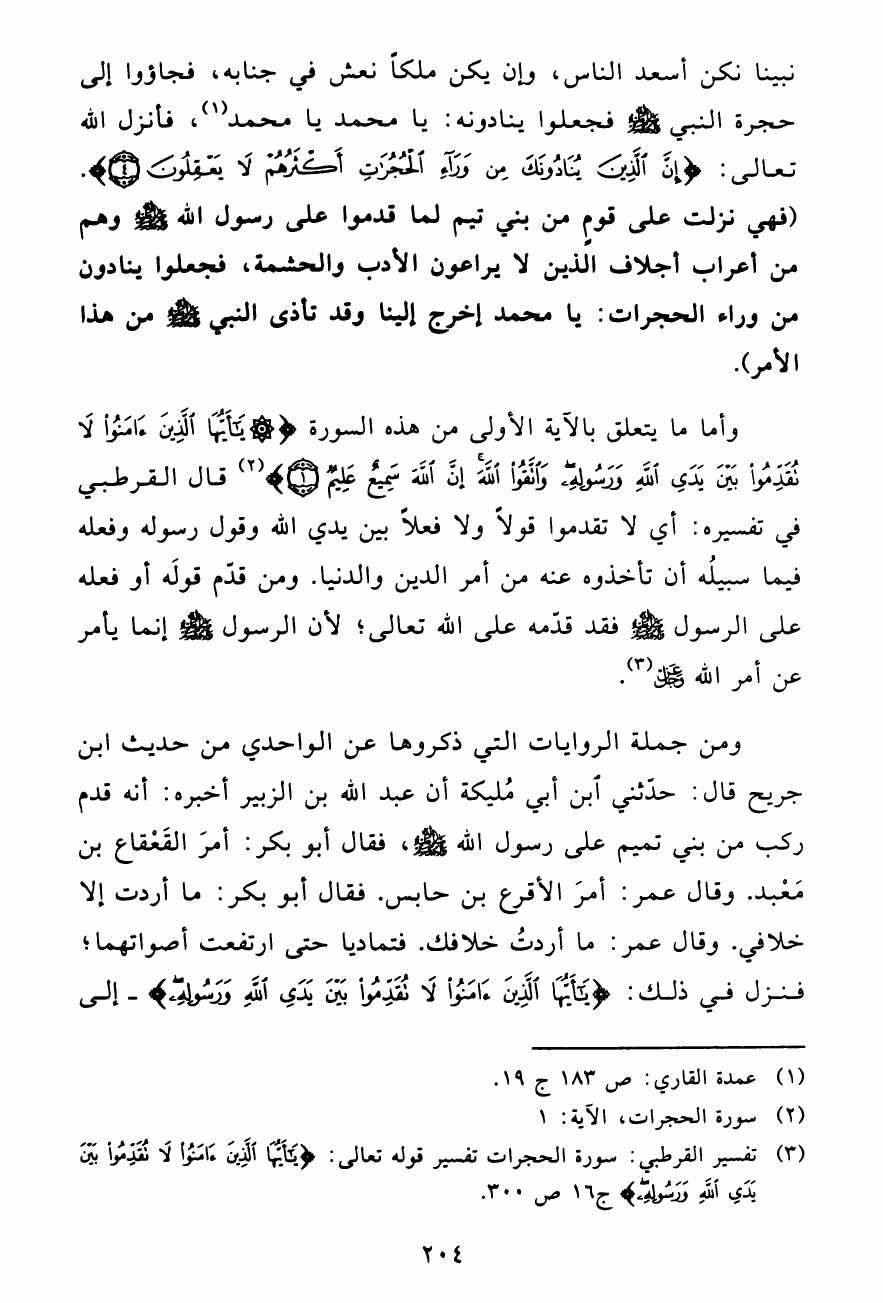 نبينا نكن أسعد الناس، وإن يكن ملكاً نعش في جنابه، فجاؤوا إلى
حجرة النبي ﷺ فجعلوا ينادونه: يا محمد يا محمد(١)، فأنزل الله
تعالى: ﴿إِنَّ ٱلَّذِينَ يُنَادُونَكَ مِن وَرَآءِ ٱلْحُجُرَٰتِ أَكْثَرُهُمْ لَا يَعْقِلُونَ ۝٤﴾.
(فهي نزلت على قومٍ من بني تيم لما قدموا على رسول الله ﷺ وهم
من أعراب أجلاف الذين لا يراعون الأدب والحشمة، فجعلوا ينادون
من وراء الحجرات: يا محمد إخرج إلينا وقد تأذى النبي ﷺ من هذا
الأمر).
وأما ما يتعلق بالآية الأولى من هذه السورة ﴿۞ يَٰٓأَيُّهَا ٱلَّذِينَ ءَامَنُوا۟ لَا
تُقَدِّمُوا۟ بَيْنَ يَدَىِ ٱللَّهِ وَرَسُولِهِۦ ۖ وَٱتَّقُوا۟ ٱللَّهَ ۚ إِنَّ ٱللَّهَ سَمِيعٌ عَلِيمٌ ۝١﴾(٢) قال القرطبي
في تفسيره: أي لا تقدموا قولاً ولا فعلاً بين يدي الله وقول رسوله وفعله
فيما سبيلُه أن تأخذوه عنه من أمر الدين والدنيا. ومن قدّم قولَه أو فعله
على الرسول ﷺ فقد قدّمه على الله تعالى؛ لأن الرسول ﷺ إنما يأمر
عن أمر الله عَزَّ وَجَلَّ(٣).
ومن جملة الروايات التي ذكروها عن الواحدي من حديث ابن
جريح قال: حدّثني ٱبن أبي مُليكة أن عبد الله بن الزبير أخبره: أنه قدم
ركب من بني تميم على رسول الله ﷺ، فقال أبو بكر: أمرَ القَعْقاع بن
مَعْبد. وقال عمر: أمرَ الأقرع بن حابس. فقال أبو بكر: ما أردت إلا
خلافي. وقال عمر: ما أردتُ خلافك. فتماديا حتى ارتفعت أصواتهما؛
فنزل في ذلك: ﴿يَٰٓأَيُّهَا ٱلَّذِينَ ءَامَنُوا۟ لَا تُقَدِّمُوا۟ بَيْنَ يَدَىِ ٱللَّهِ وَرَسُولِهِۦ﴾ - إلى
(١) عمدة القاري: ص ١٨٣ ج ١٩.
(٢) سورة الحجرات، الآية: ١
(٣) تفسير القرطبي: سورة الحجرات تفسير قوله تعالى: ﴿يَٰٓأَيُّهَا ٱلَّذِينَ ءَامَنُوا۟ لَا تُقَدِّمُوا۟ بَيْنَ
يَدَىِ ٱللَّهِ وَرَسُولِهِۦ﴾ ج١٦ ص ٣٠٠.
٢٠٤